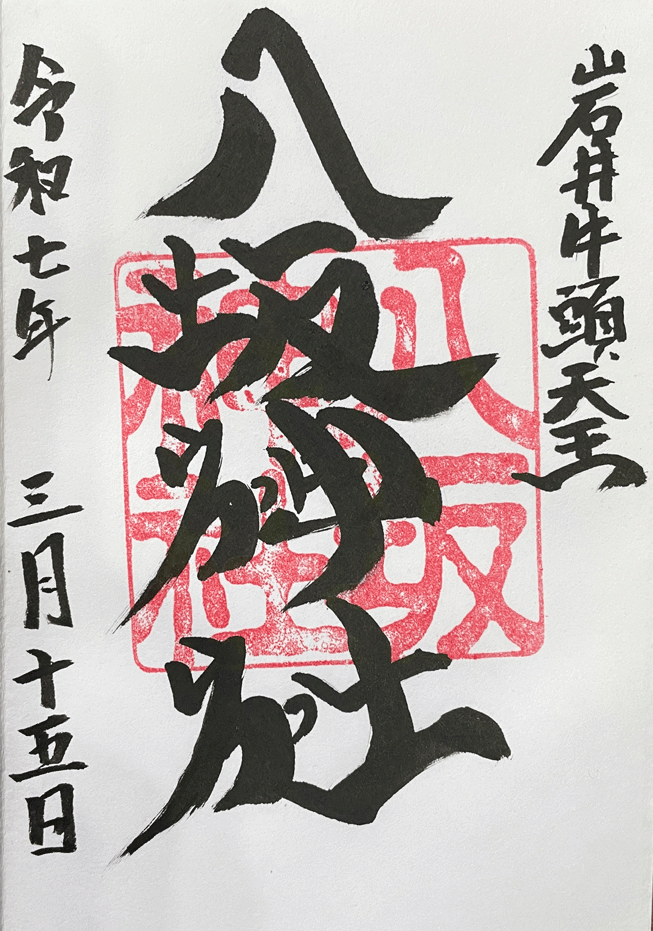 岩井牛頭天王
八坂神社
八坂神社
令和七年 三月十五日